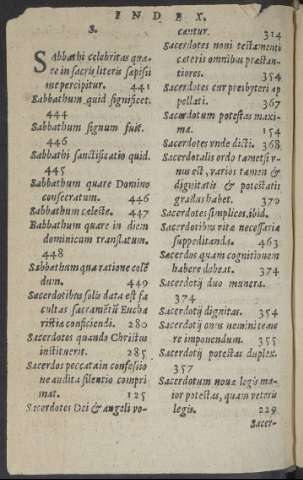 INDEX.
S.
Sabbathi celebritas qua-
re in sacris literis sæpissi
me percipitur. 441
Sabbathum quid significet.
444
Sabbathum signum fuit.
446
Sabbathi sanctificatio quid.
445
Sabbathum quare Domino
consecratum. 446
Sabbathum cæleste. 447
Sabbathum quare in diem
dominicum translatum.
448
Sabbathum qua ratione colē
dum. 449
Sacerdotibus solis data est fa
cultas sacramētū Eucha
ristiæ conficiendi. 280
Sacerdotes quando Christus
instituerit. 285
Sacerdos peccata in confessio
ne audita silentio compri
mat. 125
Sacerdotes Dei & angeli vo-
cantur. 314
Sacerdotes noui testamenti
cæteris omnibus præstan-
tiores. 354
Sacerdotes cur presbyteri ap
pellati. 367
Sacerdotum potestas maxi-
ma. 154
Sacerdotes vnde dicti. 368
Sacerdotalis ordo tametsi v-
nus est, varios tamen &
dignitatis & potestatis
gradus habet. 370
Sacerdotes simplices. ibid.
Sacerdotibus vitæ necessaria
suppeditanda. 463
Sacerdos quam cognitionem
habere debeat. 374
Sacerdotij duo munera.
374
Sacerdotij dignitas. 354
Sacerdotij onus nemini teme
re imponendum. 355
Sacerdotij potestas duplex.
357
Sacerdotum nouæ legis ma-
ior potestas, quam veteris
legis. 229
Sacer-